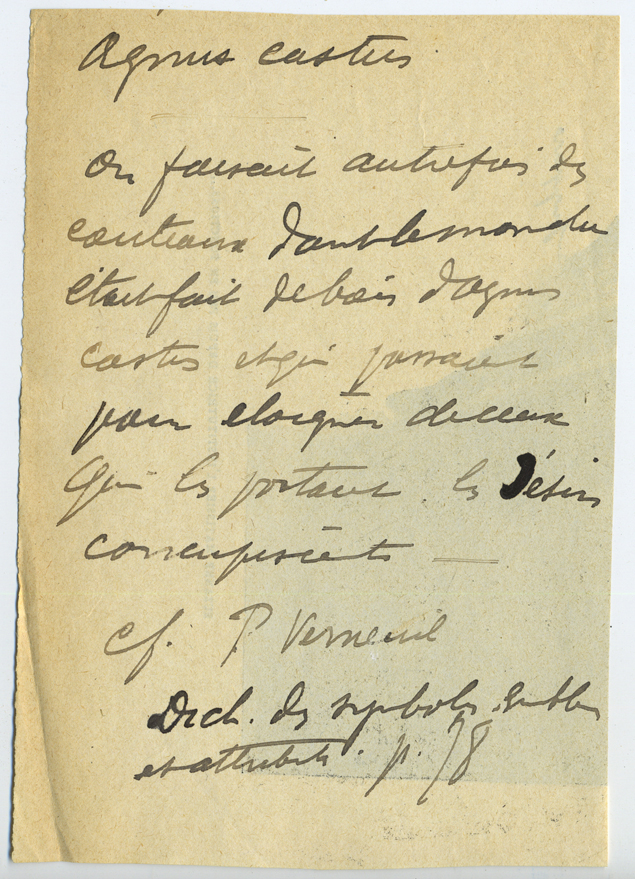 Agnus castus
On faisait autrefois des
couteaux dont le manche
était fait de bois d'agnus
castus et qui passaient
pour eloigner de ceux
qui les portaient les désirs
concupiscents —
cf. P. Verneuil
Dict. des symboles emblèmes
et attributs. p. 78